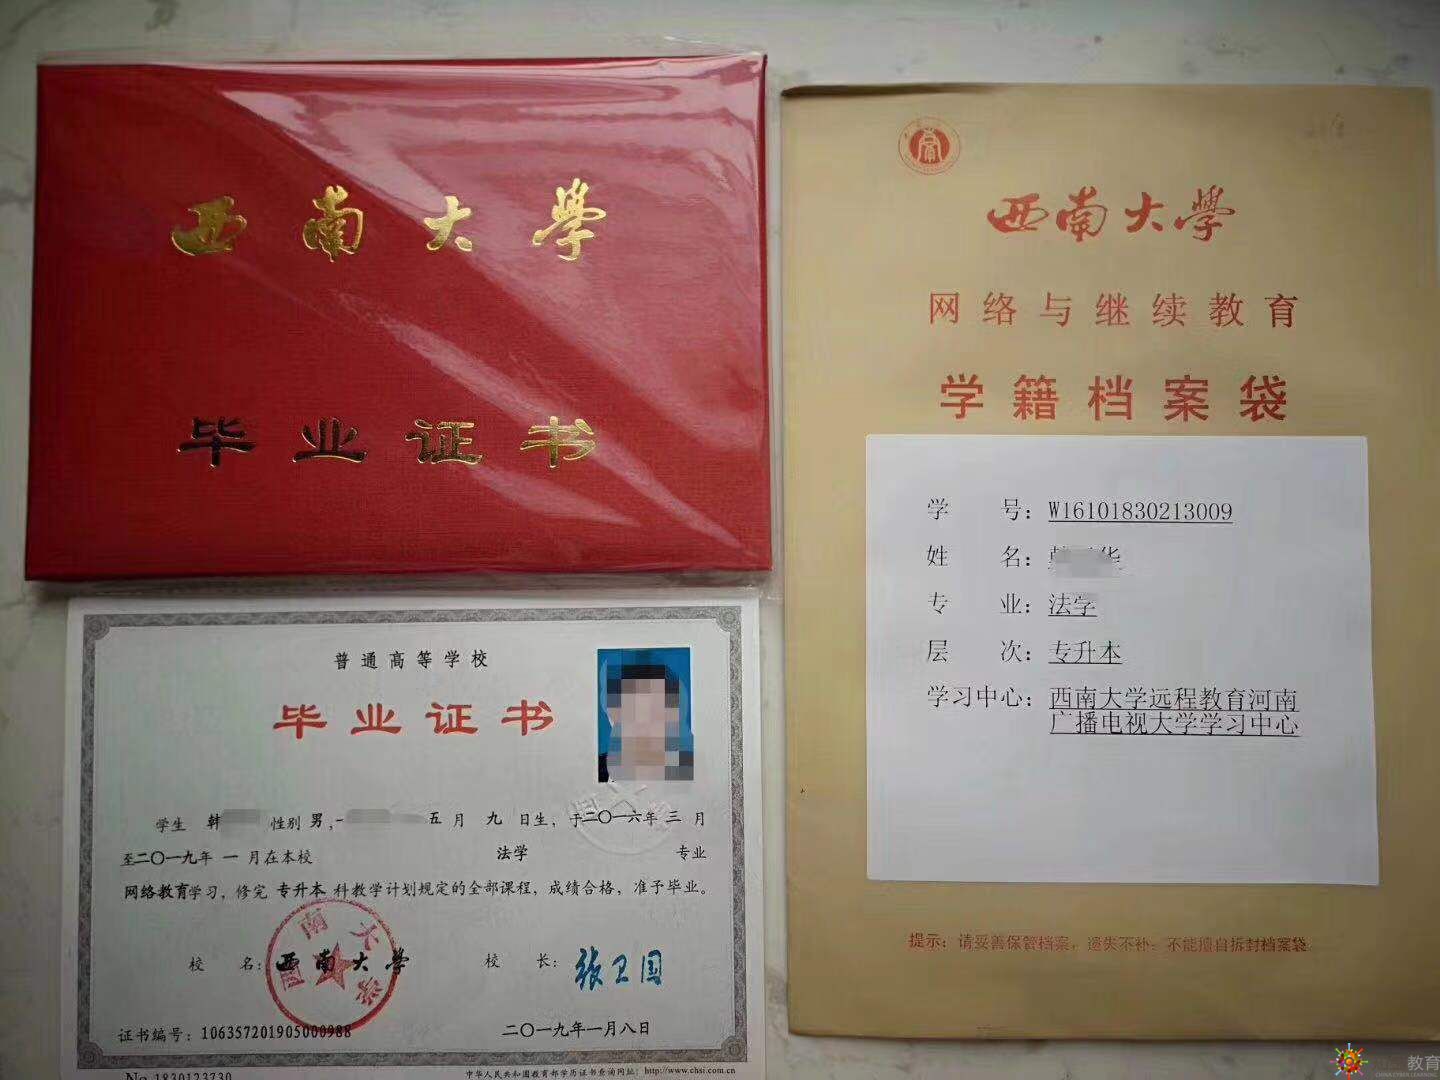 西南大學
毕业证书
西南大學
网络与继续教育
学籍档案袋
学 号：W16101830213009
姓 名：华
专 业：法学
层 次：专升本
学习中心：西南大学远程教育河南
广播电视大学学习中心
提示：请妥善保管档案，遗失不补；不能擅自拆封档案袋
普通高等学校
毕业证书
学生 韩 性别 男，一 五 月 九 日生，于二〇一六年 三 月
至二〇一九年 一 月在本校 法学 专业
网络教育学习，修完 专升本 科教学计划规定的全部课程，成绩合格，准予毕业。
校 名：西南大學 校 长：张卫国
西南大学
证书编号：106357201905000988 二〇一九年一月八日
No 1830123730
中华人民共和国教育部学历证书查询网址：http://www.chsi.com.cn
教育